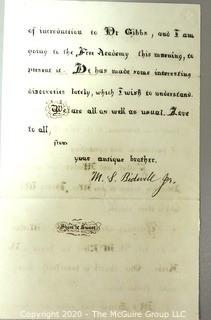 of introduction to Dr Gibbs, and I am
going to the Free Academy this morning, to
present it. He has made some interesting
discoveries lately, which I wish to understand.
We are all as well as usual. Love
to all,
from
your antique brother.
M. S. Bidwell Jr.
Copyright 2020 - The McGuire Group LLC